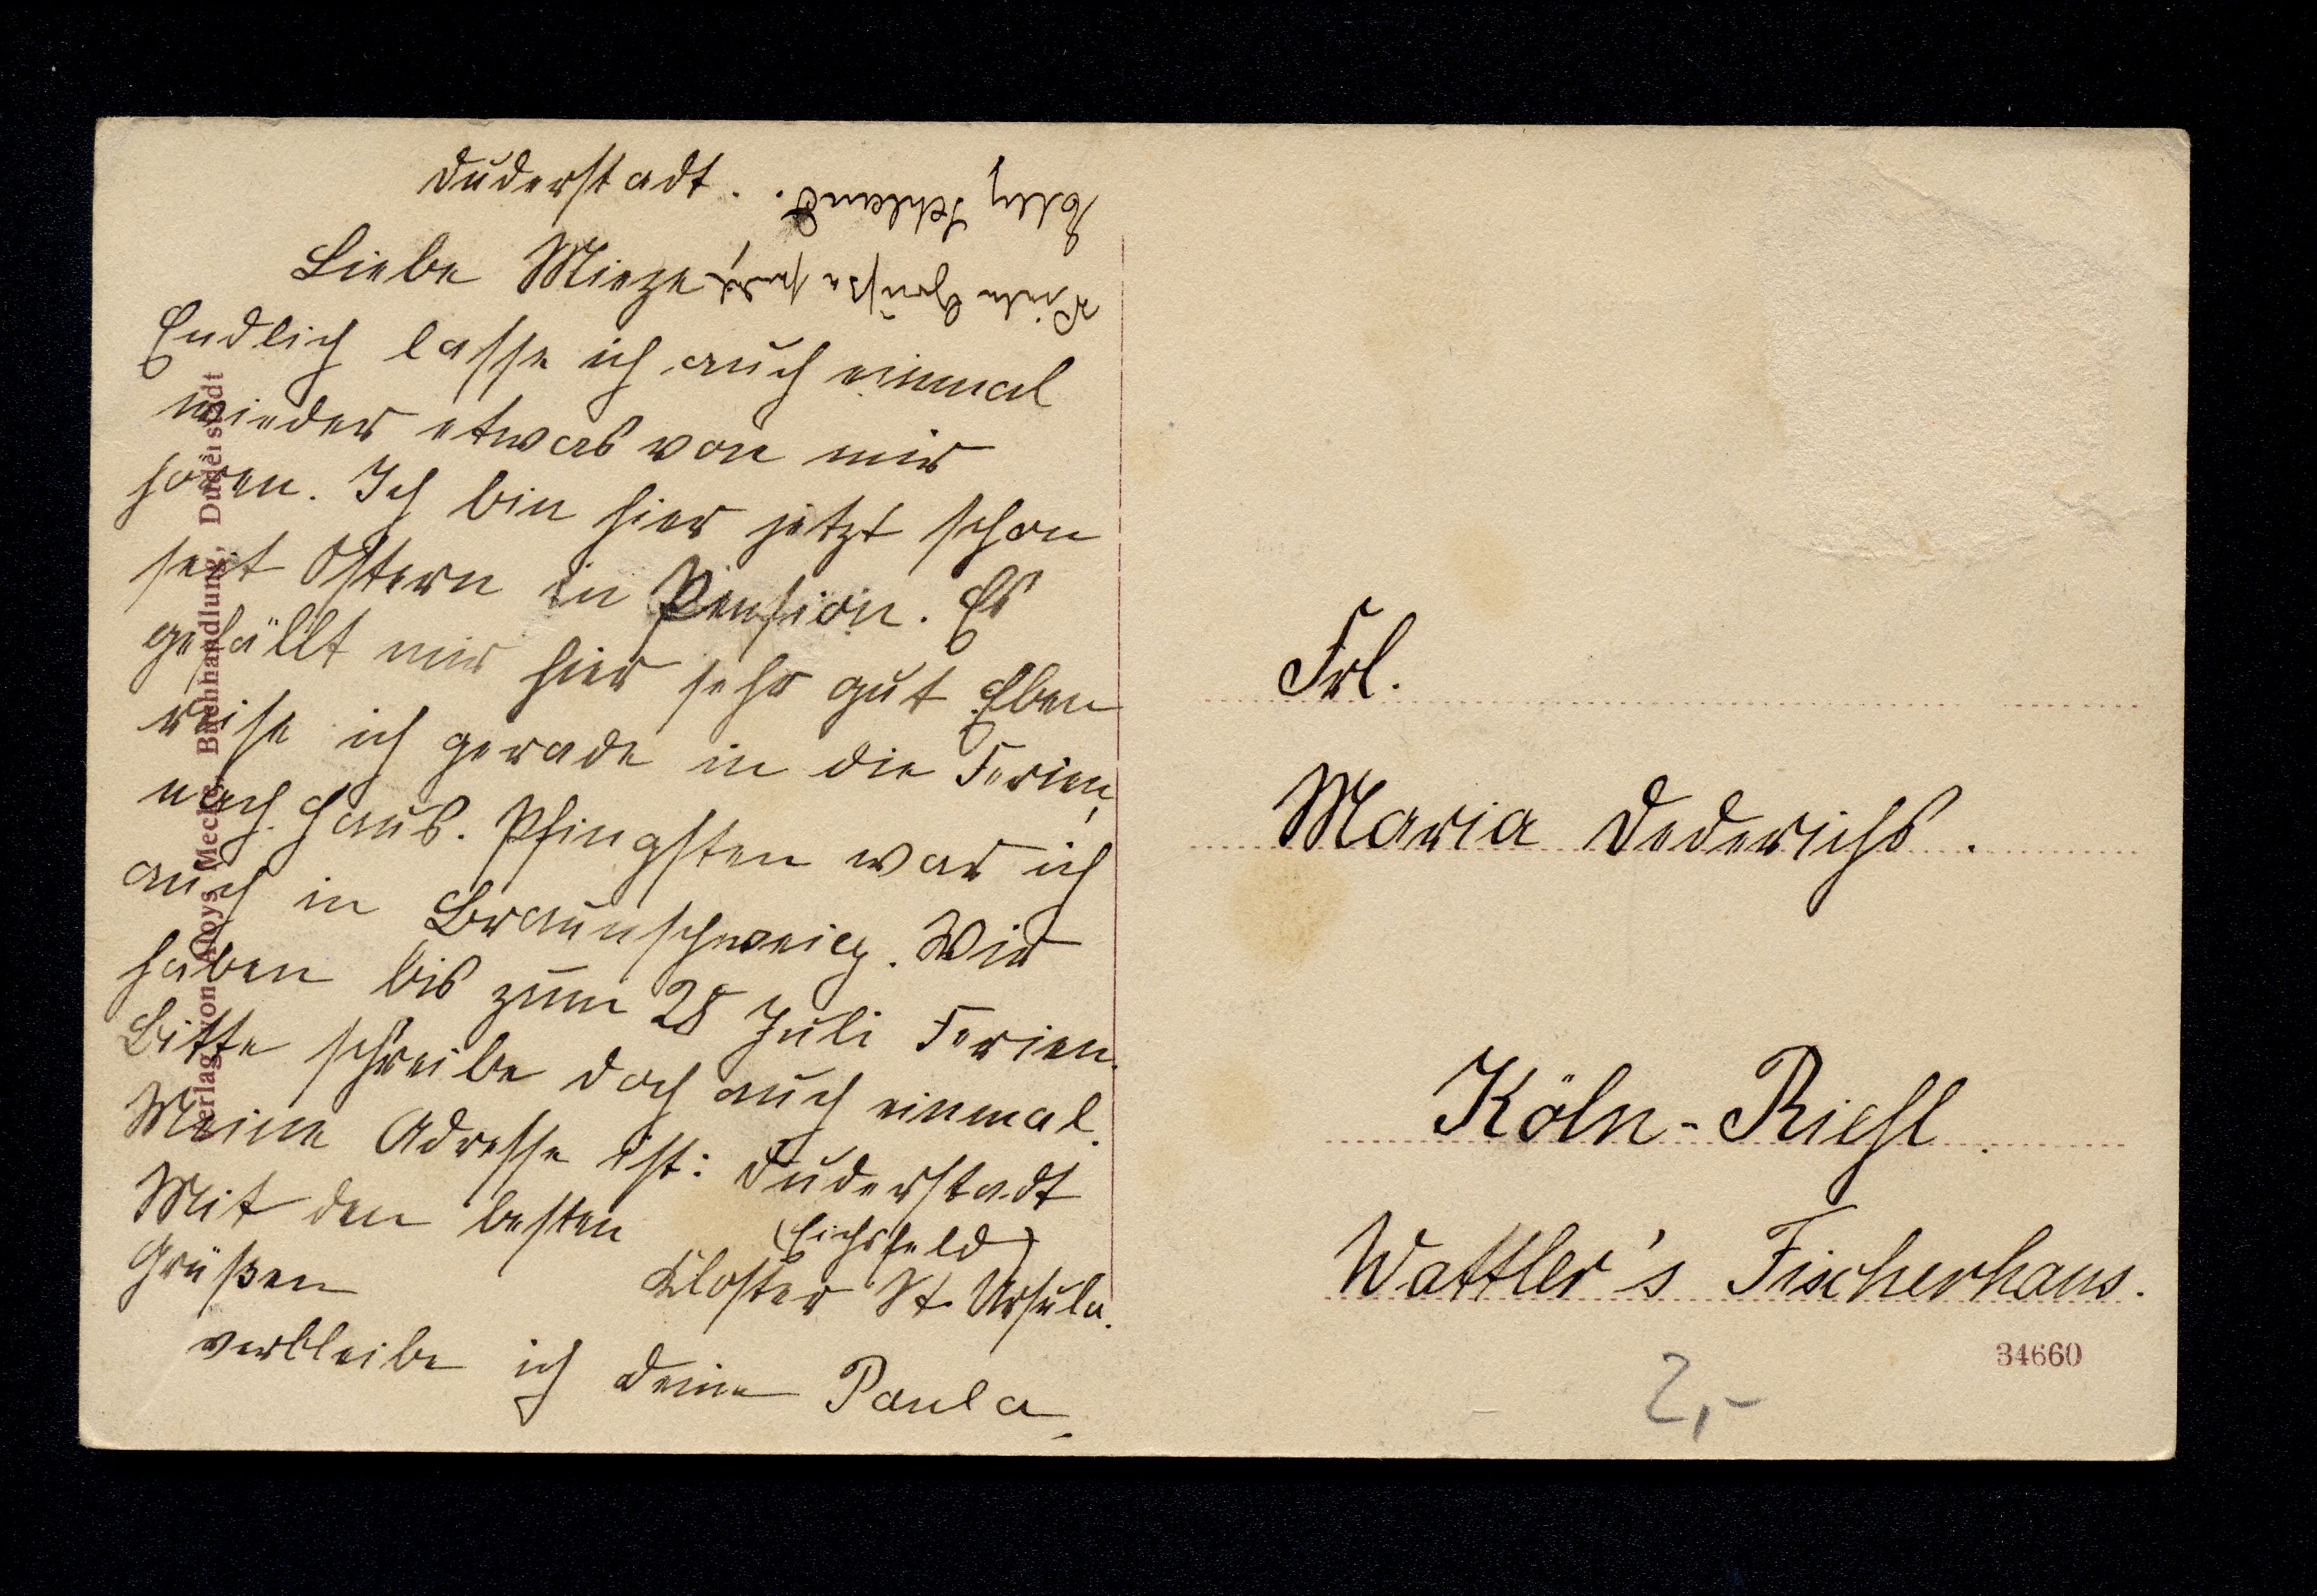 Duderstadt.
Liebe Mieze
Endlich lasse ich auch einmal
wieder etwas von mir
hören. Ich bin hier jetzt schon
seit Ostern in Pension. Es
gefällt mir hier sehr gut Eben
reise ich gerade in die Ferien,
nach Haus. Pfingsten war ich
auch in Braunschweig. Wir
haben bis zum 28 Juli Ferien.
Bitte schreibe doch auch einmal.
Meine Adresse ist: Duderstadt
(Eichsfeld)
Kloster St. Ursula.
Mit den besten
Grüßen
verbleibe ich deine Paula
Viele Grüße sendet
Elly
Verlag von Aloys Mecke, Buchhandlung, Duderstadt
Frl.
Maria Dederichs.
Köln-Riehl.
Wattler's Fischerhaus.
34660
2,-